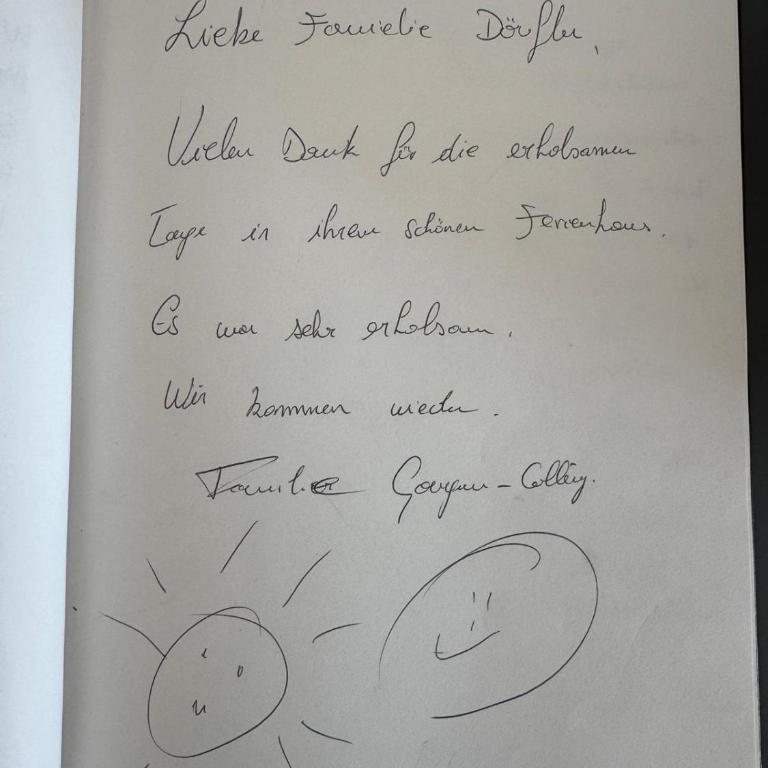 Liebe Familie Dörfler,
Vielen Dank für die erholsamen
Tage in ihrem schönen Ferienhaus.
Es war sehr erholsam.
Wir kommen wieder.
Familie